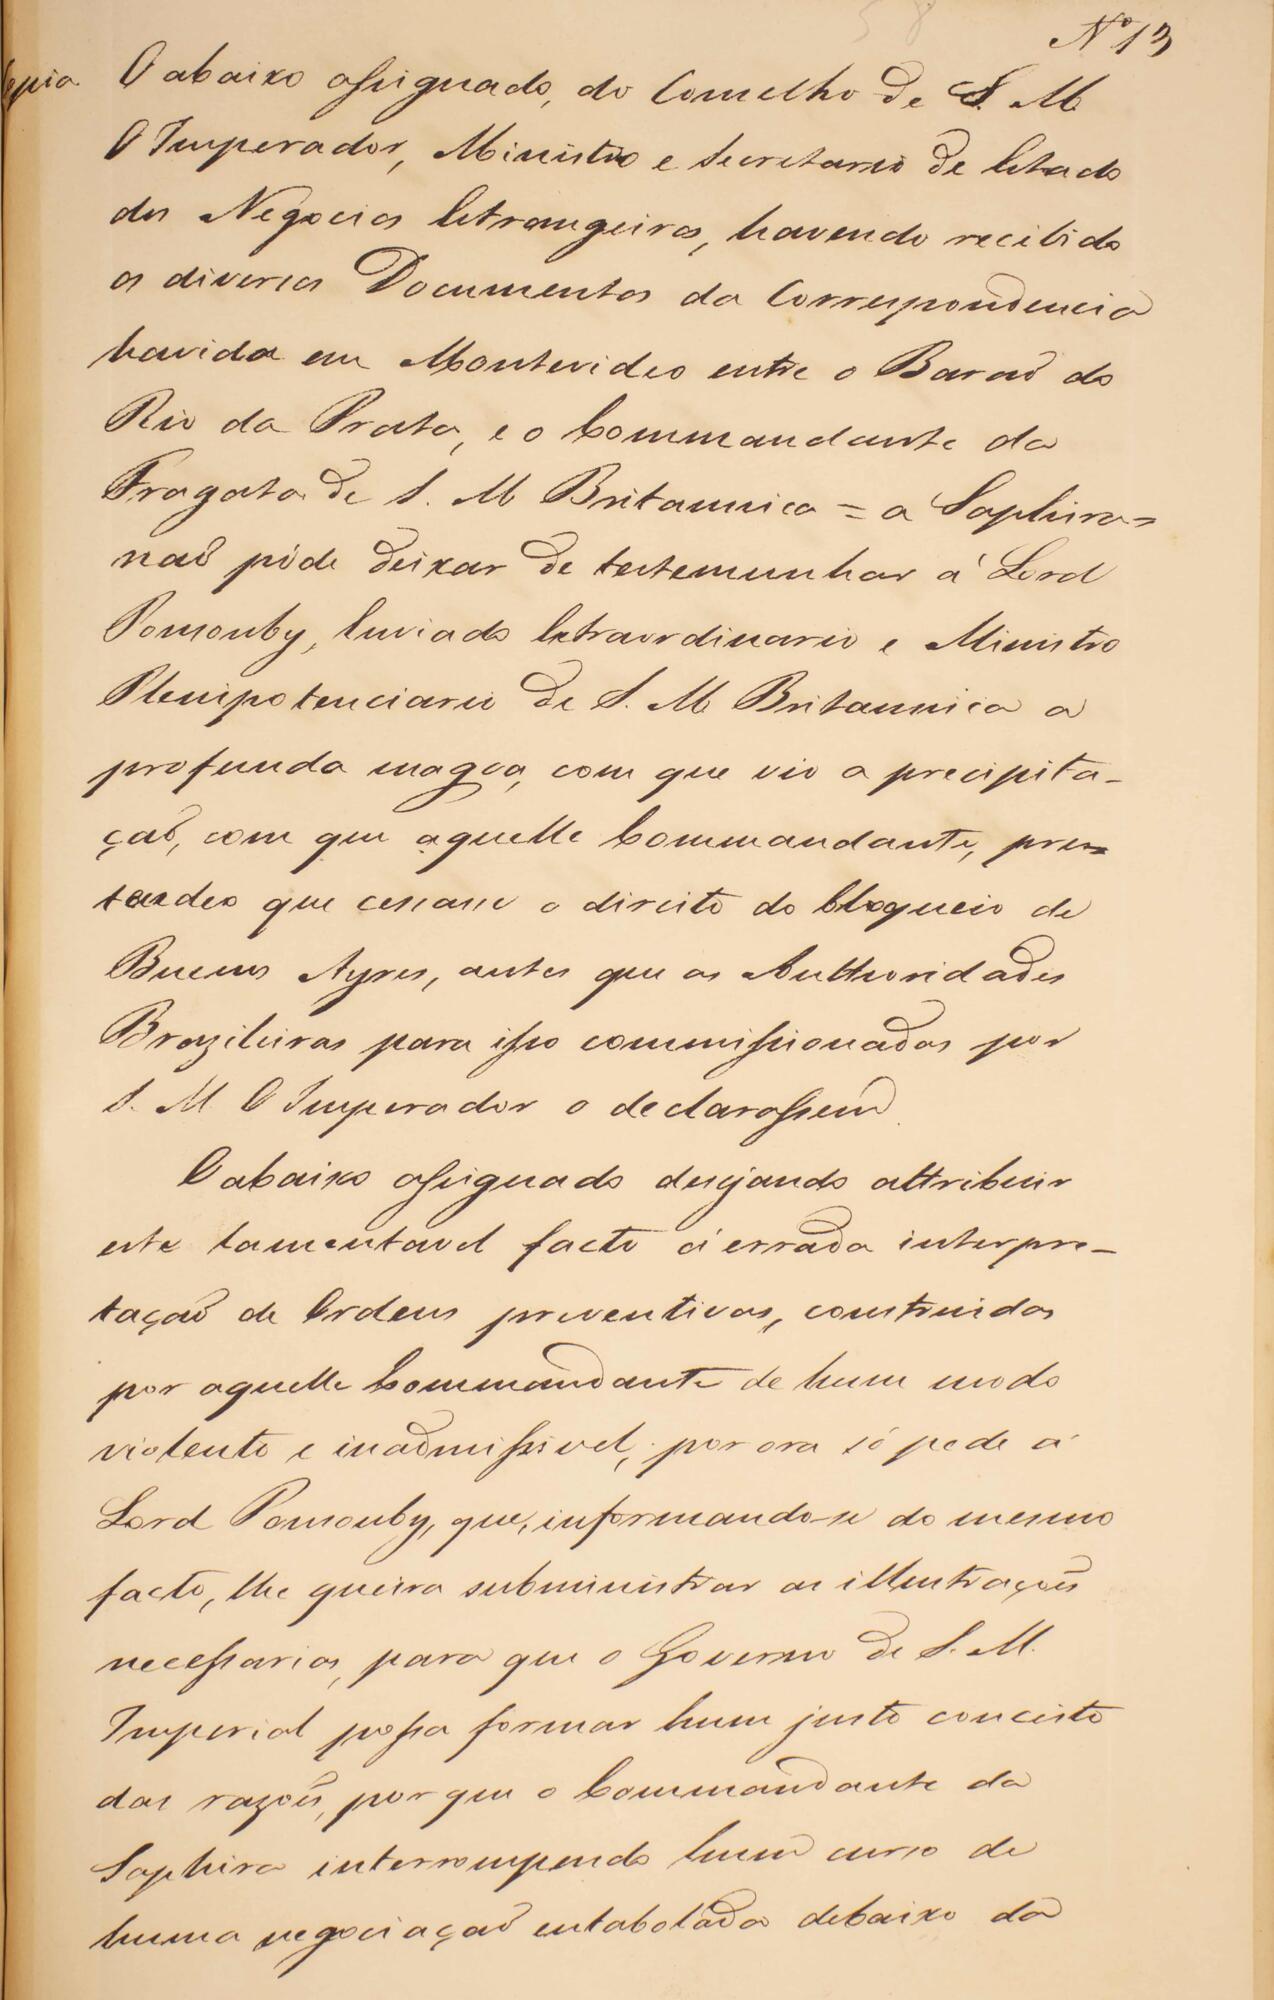 Nº 13
Copia
O abaixo assignado, do Conselho de S. M.
O Imperador, Ministro e Secretario de Estado
dos Negocios Estrangeiros, havendo recibido
os diversos Documentos da Correspondencia
havida em Montevideo entre o Barão do
Rio da Prata, e o Commandante da
Fragata de S. M. Britannica = a Saphira =
naõ póde deixar de testemunhar á Lord
Ponsonby, Enviado Extraordinario e Ministro
Plenipotenciario de S. M. Britannica a
profunda magoa, com que vio a precipita-
çaõ, com que aquelle Commandante, pre
tendeo que cessasse o direito do bloqueio de
Buenos Ayres, antes que as Authoridades
Brazileiras para isso commissionadas por
S. M. O Imperador o declarassem
O abaixo assignado desejando attribuir
este lamentavel facto á errada interpre-
taçaõ de Ordens preventivas, construidas
por aquelle Commandante de hum modo
violento e inadmissivel, por ora só pede á
Lord Ponsonby, que, informando-se do mesmo
facto, lhe queira subministrar as illustrações
necessarias, para que o Governo de S. M.
Imperial possa formar hum justo conceito
das razões, por que o Commandante da
Saphira interrompendo hum curso de
huma negociaçaõ entabolada debaixo da